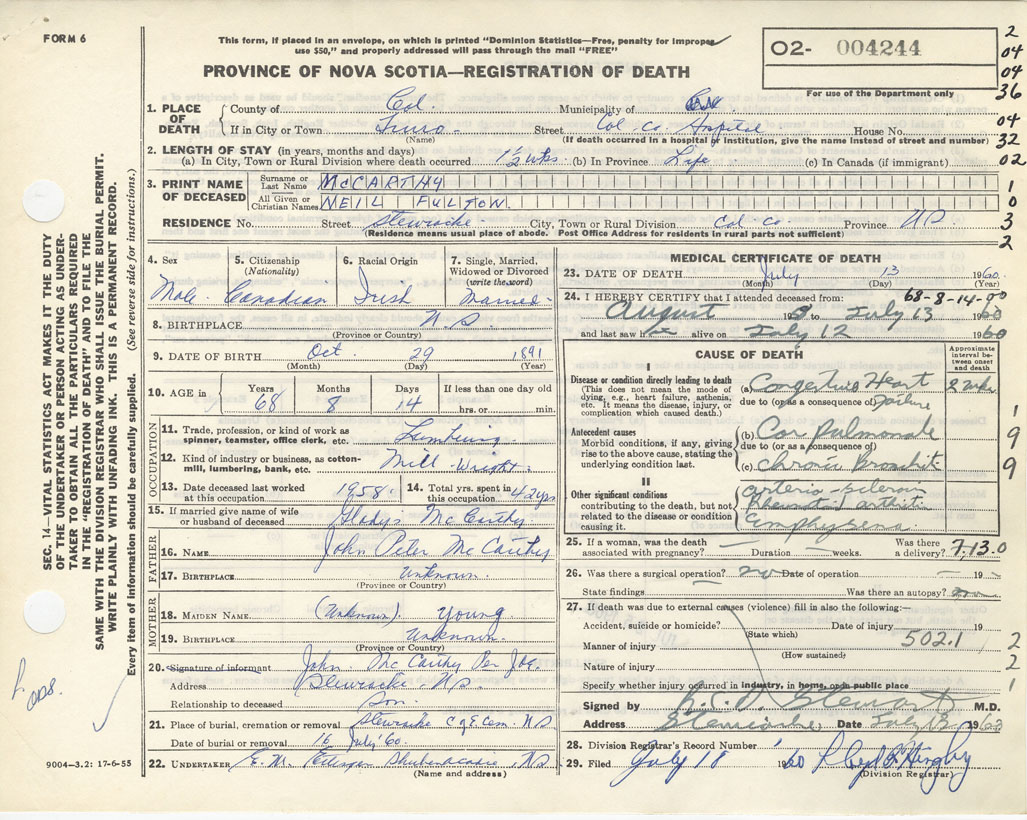 FORM 6
This form, if placed in an envelope, on which is printed "Dominion Statistics—Free, penalty for improper
use $50," and properly addressed will pass through the mail "FREE"
PROVINCE OF NOVA SCOTIA—REGISTRATION OF DEATH
O2- 004244
For use of the Department only
2
04
04
36
04
32
02
1
0
3
2
1. PLACE OF DEATH County of Col. Municipality of
If in City or Town Truro Street Col. Co. Hospital House No.
(Name) (If death occurred in a hospital or institution, give the name instead of street and number)
2. LENGTH OF STAY (in years, months and days)
(a) In City, Town or Rural Division where death occurred 1½ wks. (b) In Province Life (c) In Canada (if immigrant)
3. PRINT NAME OF DECEASED
Surname or Last Name McCARTHY
All Given or Christian Names NEIL FULTON
RESIDENCE No. Street Stewiacke City, Town or Rural Division Col. Co. Province N S
(Residence means usual place of abode. Post Office Address for residents in rural parts not sufficient)
4. Sex Male
5. Citizenship (Nationality) Canadian
6. Racial Origin Irish
7. Single, Married, Widowed or Divorced (write the word) Married
8. BIRTHPLACE N S
(Province or Country)
9. DATE OF BIRTH Oct. 29 1891
(Month) (Day) (Year)
10. AGE in Years 68 Months 8 Days 14 If less than one day old
hrs. or min.
OCCUPATION
11. Trade, profession, or kind of work as spinner, teamster, office clerk, etc. Lumbering
12. Kind of industry or business, as cotton-mill, lumbering, bank, etc. Mill Wright
13. Date deceased last worked at this occupation 1958 14. Total yrs. spent in this occupation 42 yrs
15. If married give name of wife or husband of deceased Gladys McCarthy
FATHER
16. NAME John Peter McCarthy
17. BIRTHPLACE Unknown
(Province or Country)
MOTHER
18. MAIDEN NAME (Unknown) Young
19. BIRTHPLACE Unknown
(Province or Country)
20. Signature of informant John McCarthy Per
Address Stewiacke N S
Relationship to deceased Son
21. Place of burial, cremation or removal Stewiacke Cem N S
Date of burial or removal 16 July '60
22. UNDERTAKER E. M. Shubenacadie, N S
(Name and address)
MEDICAL CERTIFICATE OF DEATH
23. DATE OF DEATH July 13 1960
(Month) (Day) (Year)
68-8-14-00
24. I HEREBY CERTIFY that I attended deceased from:
August 19 to July 13 1960
and last saw h alive on July 12 1960
CAUSE OF DEATH
Approximate interval between onset and death
I
Disease or condition directly leading to death
(This does not mean the mode of dying, e.g., heart failure, asthenia, etc. It means the disease, injury, or complication which caused death.)
(a) Congestive Heart Failure
due to (or as a consequence of)
Antecedent causes
Morbid conditions, if any, giving rise to the above cause, stating the underlying condition last.
(b) Cor Pulmonale
due to (or as a consequence of)
(c) Chronic Bronchitis
1
9
9
II
Other significant conditions contributing to the death, but not related to the disease or condition causing it.
Arterio-sclerosis
Rheumatoid arthritis
Emphysema
25. If a woman, was the death associated with pregnancy? Duration weeks. Was there a delivery?
7.13.0
26. Was there a surgical operation? no Date of operation 19
State findings Was there an autopsy?
27. If death was due to external causes (violence) fill in also the following:—
Accident, suicide or homicide? Date of injury 19
(State which)
502.1
Manner of injury
(How sustained)
2
Nature of injury
2
Specify whether injury occurred in industry, in home, or in public place
1
Signed by Stewart M.D.
Address Stewiacke Date July 13 1960
28. Division Registrar's Record Number
29. Filed July 18 1960
(Division Registrar)
SEC. 14—VITAL STATISTICS ACT MAKES IT THE DUTY
OF THE UNDERTAKER OR PERSON ACTING AS UNDER-
TAKER TO OBTAIN ALL THE PARTICULARS REQUIRED
IN THE "REGISTRATION OF DEATH" AND TO FILE THE
SAME WITH THE DIVISION REGISTRAR WHO SHALL ISSUE THE BURIAL PERMIT.
WRITE PLAINLY WITH UNFADING INK. THIS IS A PERMANENT RECORD.
Every item of information should be carefully supplied. (See reverse side for instructions.)
9004-3.2: 17-6-55